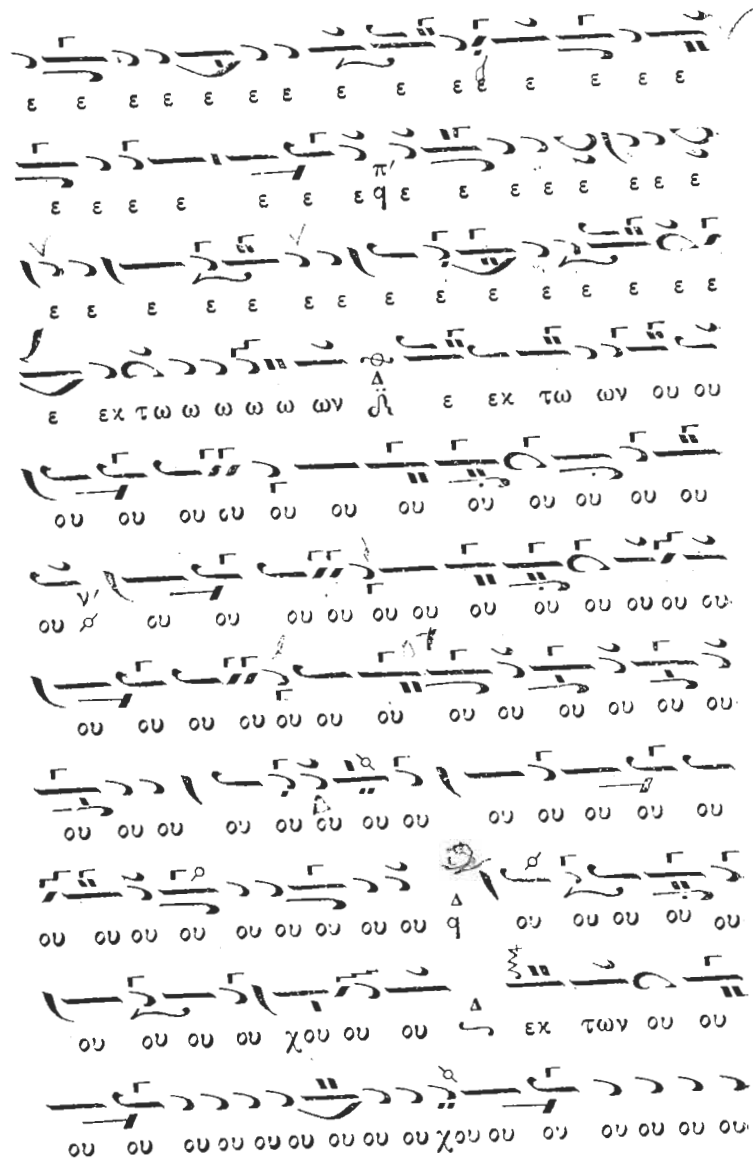 ε ε ε ε ε ε ε ε ε ε ε ε ε ε ε
ε ε ε ε ε ε ε π' q ε ε ε ε ε ε ε ε
ε ε ε ε ε ε ε ε ε ε ε ε ε ε ε
ε εκ τω ω ω ω ω ων Δ ε εκ τω ων ου ου
ου ου ου ου ου ου ου ου ου ου ου ου
ου ν' ου ου ου ου ου ου ου ου ου ου ου ου
ου ου ου ου ου ου ου ου ου ου ου ου ου
ου ου ου ου ου ου ου ου ου ου ου ου ου
ου ου ου ου ου ου ου ου ου Δ q ου ου ου ου ου
ου ου ου ου χου ου ου Δ εκ των ου ου
ου ου ου ου ου ου ου ου ου χου ου ου ου ου ου ου